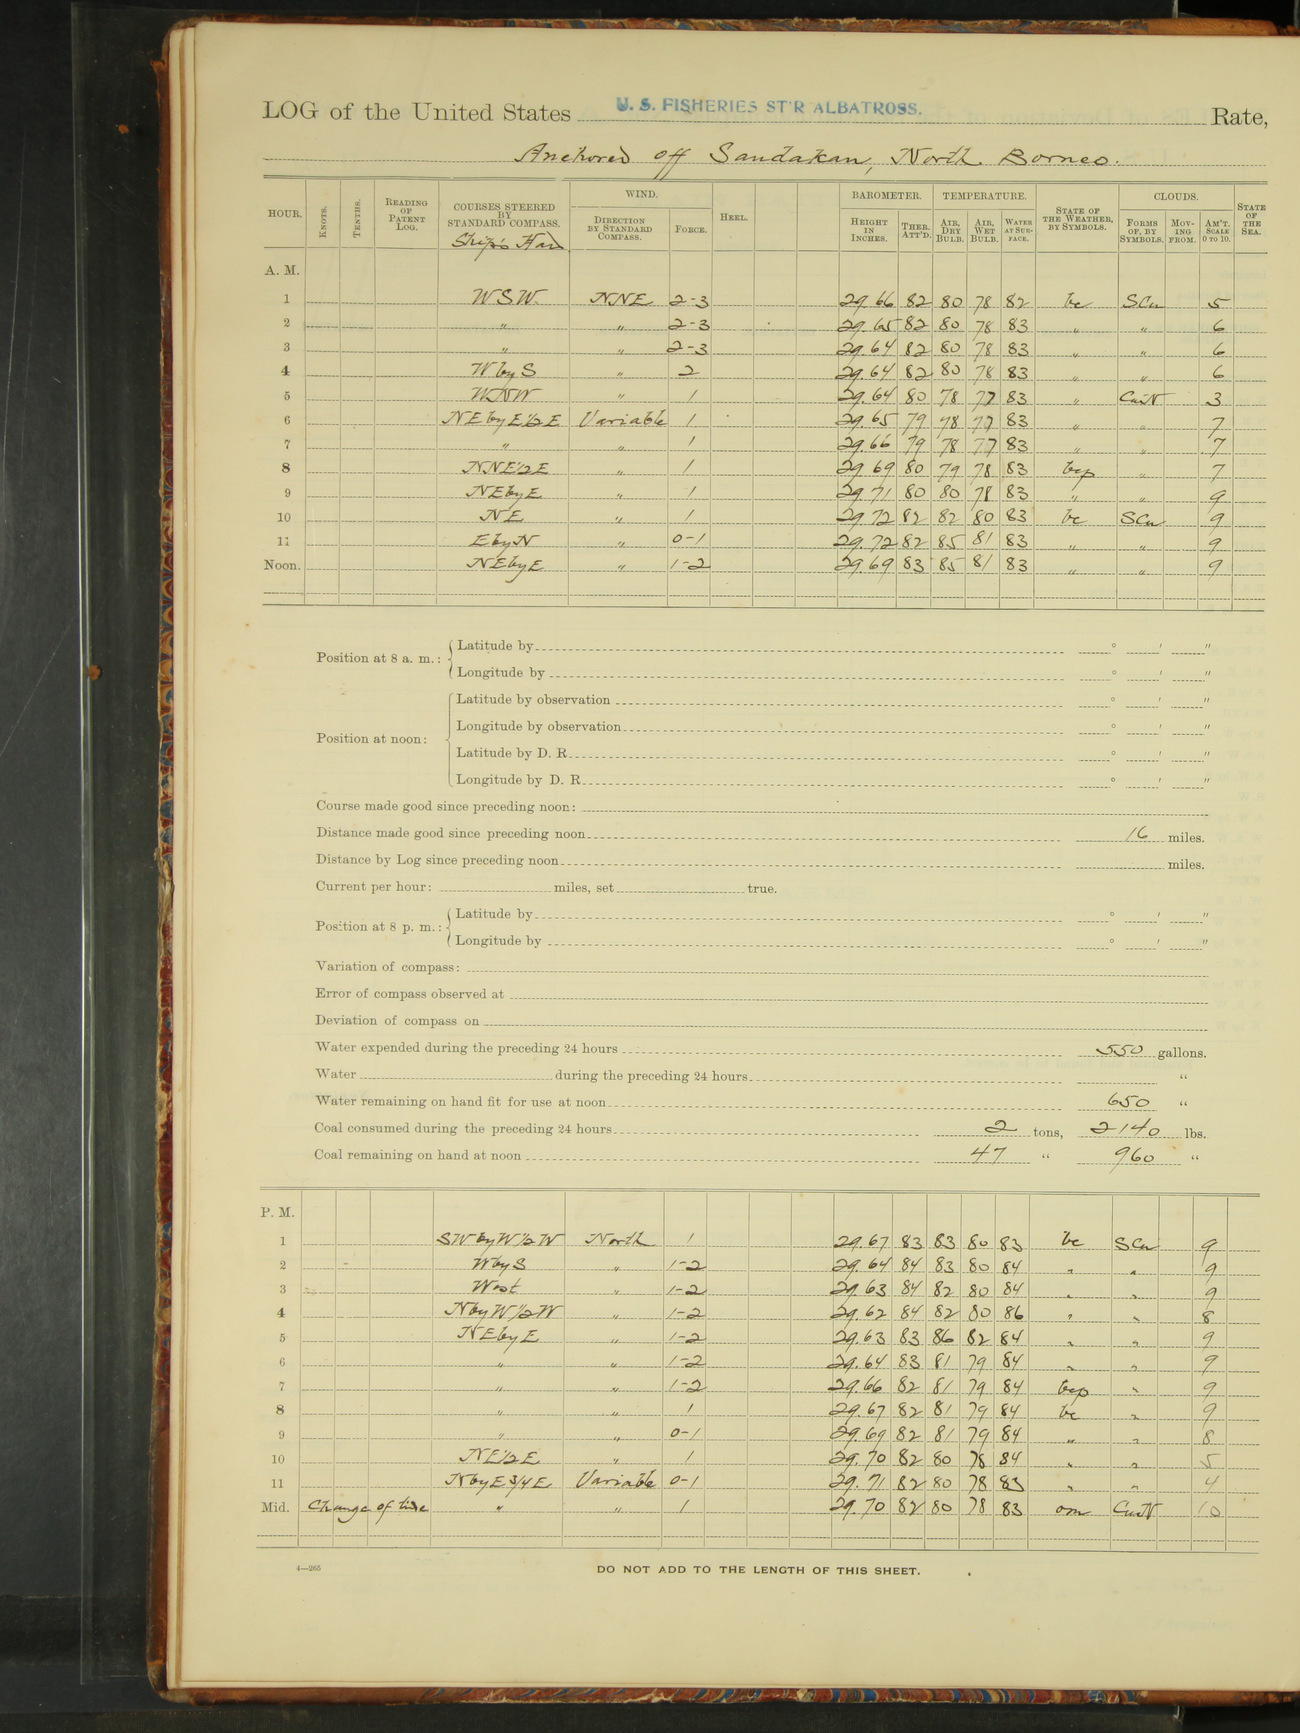 LOG of the United States U. S. FISHERIES ST'R ALBATROSS. Rate,
Anchored off Sandakan, North Borneo.
HOUR. KNOTS. TENTHS. READING OF PATENT LOG. COURSES STEERED BY STANDARD COMPASS. Ship's Head WIND. DIRECTION BY STANDARD COMPASS. FORCE. HEEL. BAROMETER. HEIGHT IN INCHES. THER. ATT'D. TEMPERATURE. AIR, DRY BULB. AIR, WET BULB. WATER AT SURFACE. STATE OF THE WEATHER, BY SYMBOLS. CLOUDS. FORMS OF, BY SYMBOLS. MOVING FROM. AM'T. SCALE 0 TO 10. STATE OF THE SEA.
A. M.
1 WSW. NNE 2-3 29.66 82 80 78 82 bc SCu 5
2 " " 2-3 29.65 82 80 78 83 " " 6
3 " " 2-3 29.64 82 80 78 83 " " 6
4 W by S " 2 29.64 82 80 78 83 " " 6
5 WNW " 1 29.64 80 78 77 83 " CuN 3
6 NE by E 1/2 E Variable 1 29.65 79 78 77 83 " " 7
7 " " 1 29.66 79 78 77 83 " " 7
8 NNE 1/2 E " 1 29 69 80 79 78 83 bcp " 7
9 NE by E " 1 29 71 80 80 78 83 " " 9
10 NE " 1 29.72 82 82 80 83 bc SCu 9
11 E by N " 0-1 29.72 82 85 81 83 " " 9
Noon. NE by E " 1-2 29.69 83 85 81 83 " " 9
Position at 8 a. m.: Latitude by ° ' "
Longitude by ° ' "
Position at noon: Latitude by observation ° ' "
Longitude by observation ° ' "
Latitude by D. R. ° ' "
Longitude by D. R. ° ' "
Course made good since preceding noon:
Distance made good since preceding noon 16 miles.
Distance by Log since preceding noon miles.
Current per hour: miles, set true.
Position at 8 p. m.: Latitude by ° ' "
Longitude by ° ' "
Variation of compass:
Error of compass observed at
Deviation of compass on
Water expended during the preceding 24 hours 550 gallons.
Water during the preceding 24 hours "
Water remaining on hand fit for use at noon 650 "
Coal consumed during the preceding 24 hours 2 tons, 2140 lbs.
Coal remaining on hand at noon 47 " 960 "
P. M.
1 SW by W 1/2 W North 1 29.67 83 83 80 83 bc SCu 9
2 W by S " 1-2 29.64 84 83 80 84 " " 9
3 West " 1-2 29.63 84 82 80 84 " " 9
4 N by W 1/2 W " 1-2 29.62 84 82 80 86 " " 8
5 NE by E " 1-2 29.63 83 86 82 84 " " 9
6 " " 1-2 29.64 83 81 79 84 " " 9
7 " " 1-2 29.66 82 81 79 84 bcp " 9
8 " " 1 29.67 82 81 79 84 bc " 9
9 " " 0-1 29.69 82 81 79 84 " " 8
10 NE 1/2 E " 1 29.70 82 80 78 84 " " 5
11 N by E 3/4 E Variable 0-1 29.71 82 80 78 83 " " 4
Mid. Change of tide " " 1 29.70 82 80 78 83 om CuN 10
4—265
DO NOT ADD TO THE LENGTH OF THIS SHEET.